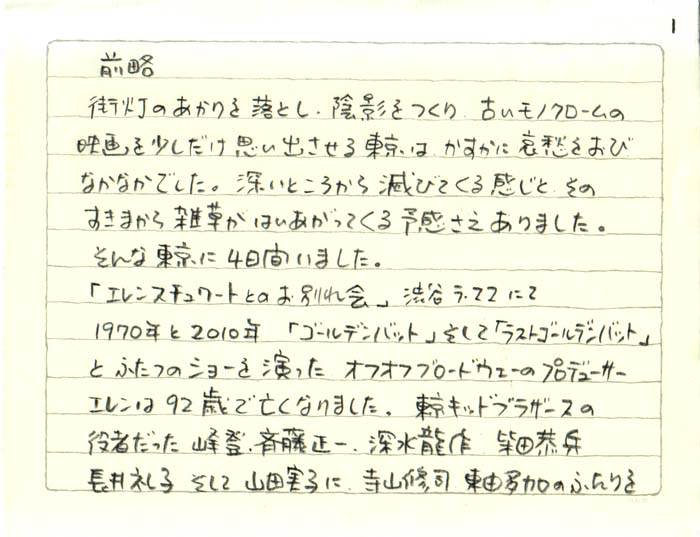 1
前略
街灯のあかりを落とし、陰影をつくり 古いモノクロームの
映画を少しだけ思い出させる東京は かすかに哀愁をおび
なかなかでした。深いところから滅びてくる感じと その
すきまから雑草がはいあがってくる予感さえありました。
そんな東京に4日間いました。
「エレンスチュワートとのお別れ会」渋谷 ラ.ママ にて
1970年と2010年 「ゴールデンバット」そして「ラストゴールデンバット」
とふたつのショーを演った オフオフブロードウェーのプロデューサー
エレンは92歳で亡くなりました。東京キッドブラザースの
役者だった 峰登、斉藤正一、深水龍作 柴田恭兵
長井れい子 そして 山田実子に 寺山修司 東由多加のふたりを